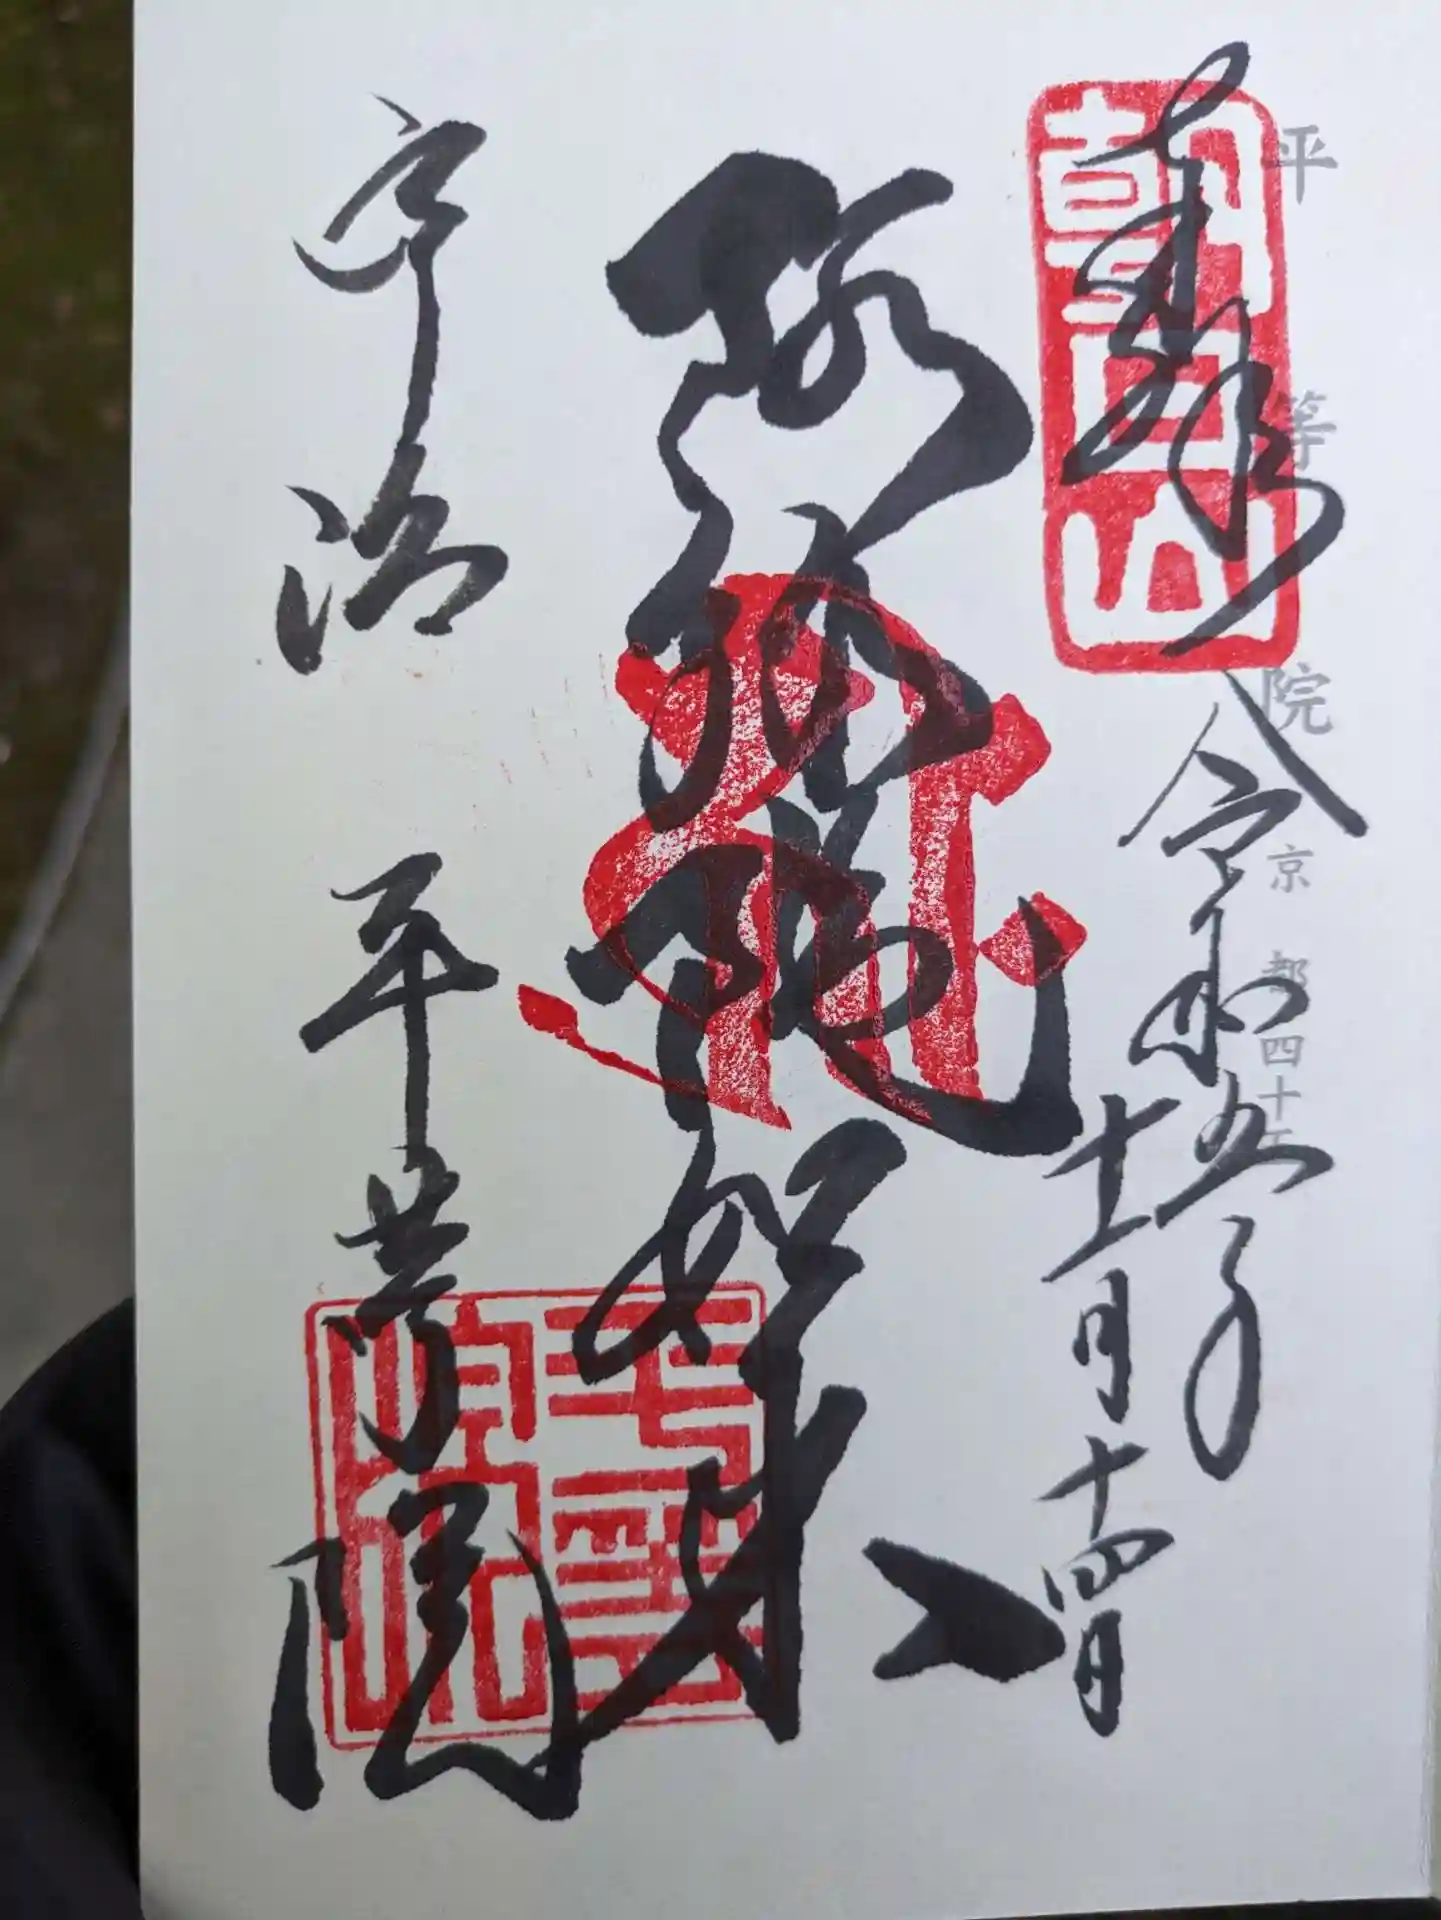 平等院 京都四十
奉拝
朝日山
令和五年
十一月十四日
阿弥陀如来
宇治 平等院